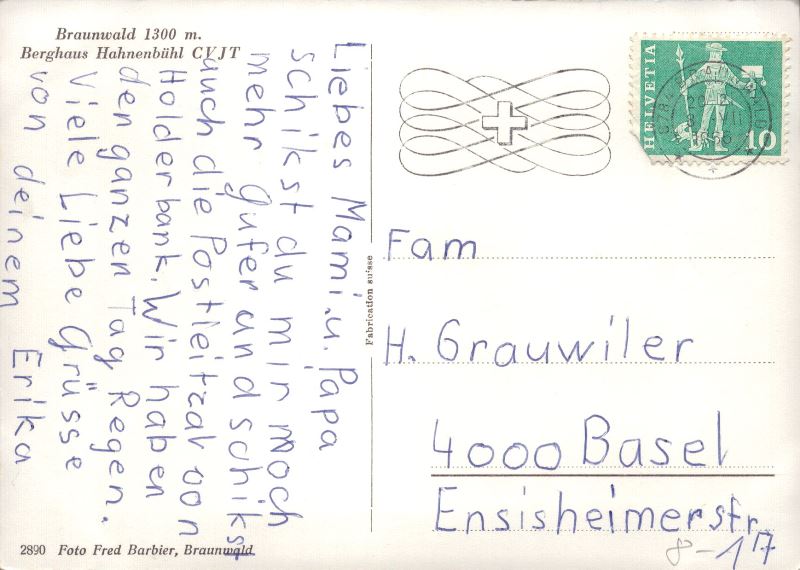 Braunwald 1300 m.
Berghaus Hahnenbühl CVJT
Liebes Mami.u.Papa
schikst du mir noch
mehr Gufer and schikst
auch die Postleitzal von
Holderbank. Wir haben
den ganzen Tag Regen.
Viele Liebe Grüsse
von deinem Erika
2890 Foto Fred Barbier, Braunwald.
Fabrication suisse
HELVETIA
10
Fam
H. Grauwiler
4000 Basel
Ensisheimerstr.
8-17